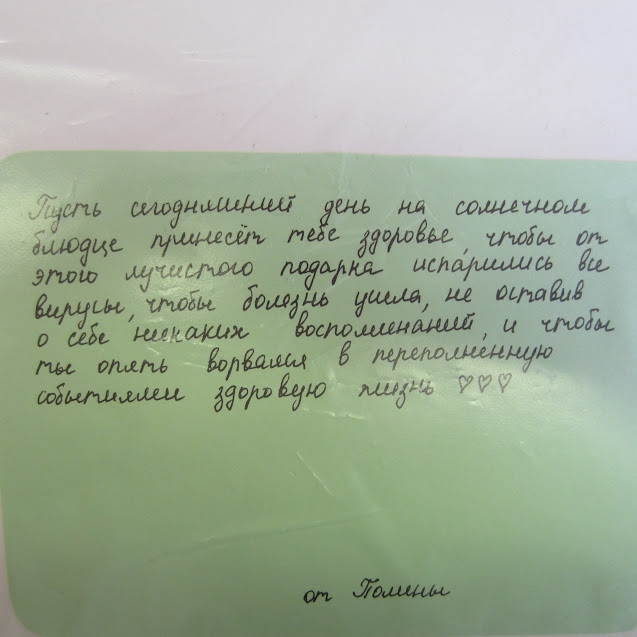 Пусть сегодняшний день на солнечном
блюдце принесёт тебе здоровье, чтобы от
этого лучистого подарка испарились все
вирусы, чтобы болезнь ушла, не оставив
о себе никаких воспоминаний, и чтобы
ты опять ворвался в переполненную
событиями здоровую жизнь ♡♡♡
от Полины